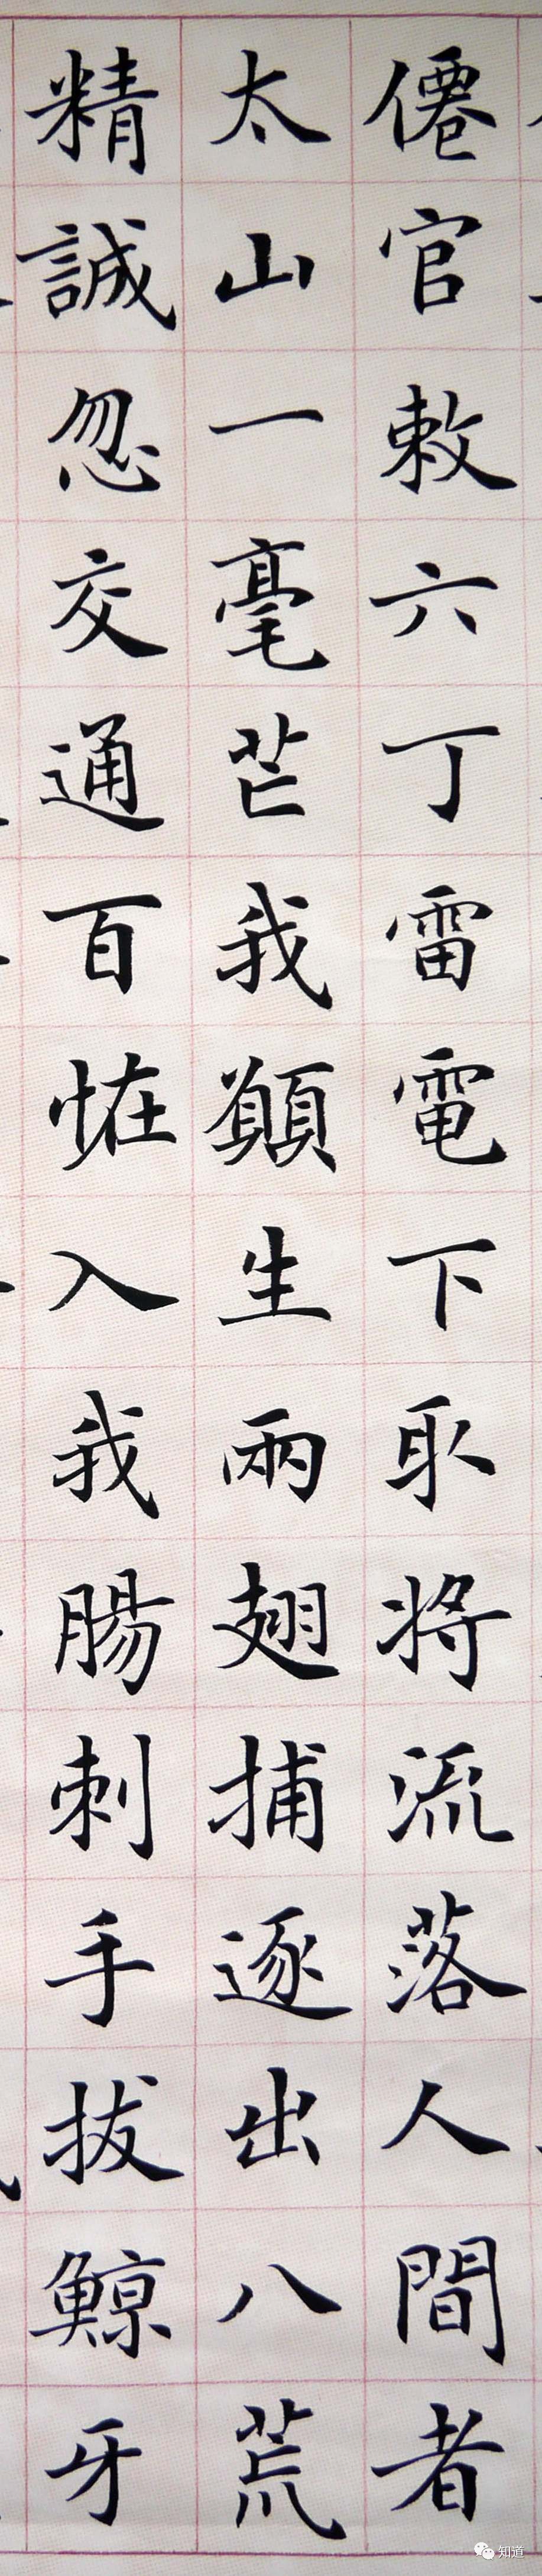 僊官敕六丁雷電下取將流落人間者
太山一毫芒我願生兩翅捕逐出八荒
精誠忽交通百恠入我腸刺手拔鯨牙
知道